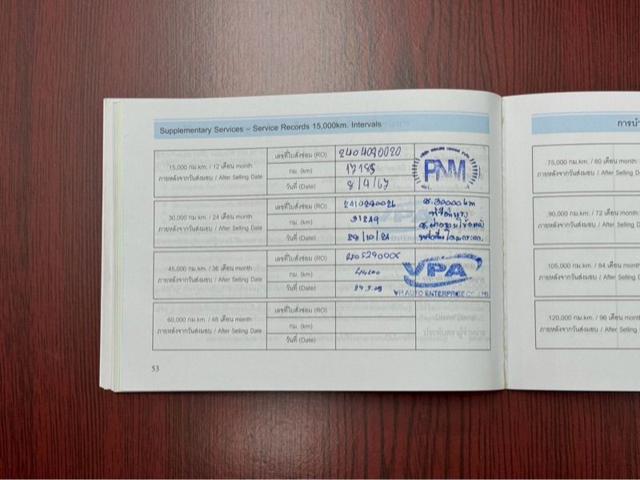 Supplementary Services – Service Records 15,000km. Intervals
15,000 กม.km. / 12 เดือน month
ภายหลังจากวันส่งมอบ / After Selling Date
เลขที่ใบสั่งซ่อม (RO)
2404090020
กม. (km)
17185
วันที่ (Date)
8/4/67
PNM
30,000 กม.km. / 24 เดือน month
ภายหลังจากวันส่งมอบ / After Selling Date
เลขที่ใบสั่งซ่อม (RO)
กม. (km)
31219
วันที่ (Date)
30000 km
45,000 กม.km. / 36 เดือน month
ภายหลังจากวันส่งมอบ / After Selling Date
เลขที่ใบสั่งซ่อม (RO)
กม. (km)
วันที่ (Date)
VPA
VP AUTO ENTERPRISE CO., LTD
60,000 กม.km. / 48 เดือน month
ภายหลังจากวันส่งมอบ / After Selling Date
เลขที่ใบสั่งซ่อม (RO)
กม. (km)
วันที่ (Date)
53
การนำ
75,000 กม.km. / 60 เดือน month
ภายหลังจากวันส่งมอบ / After Selling
90,000 กม.km. / 72 เดือน month
ภายหลังจากวันส่งมอบ / After Selling
105,000 กม.km. / 84 เดือน month
ภายหลังจากวันส่งมอบ / After Selling
120,000 กม.km. / 96 เดือน month
ภายหลังจากวันส่งมอบ / After Selling